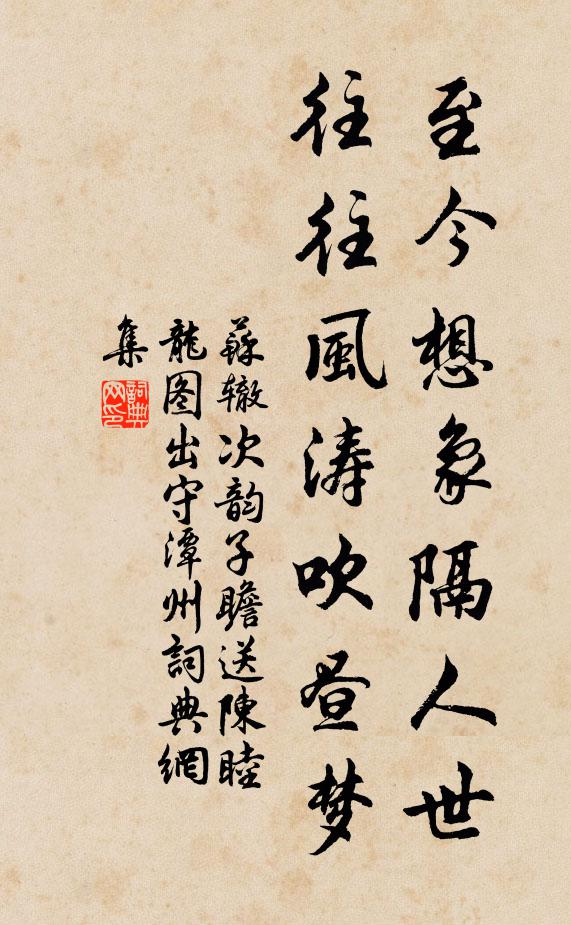 至今想象隔人世
往往風涛吹昼梦
蘇辙次韵子瞻送陳睦
龍图出守潭州詞典網
集
詞典
网印